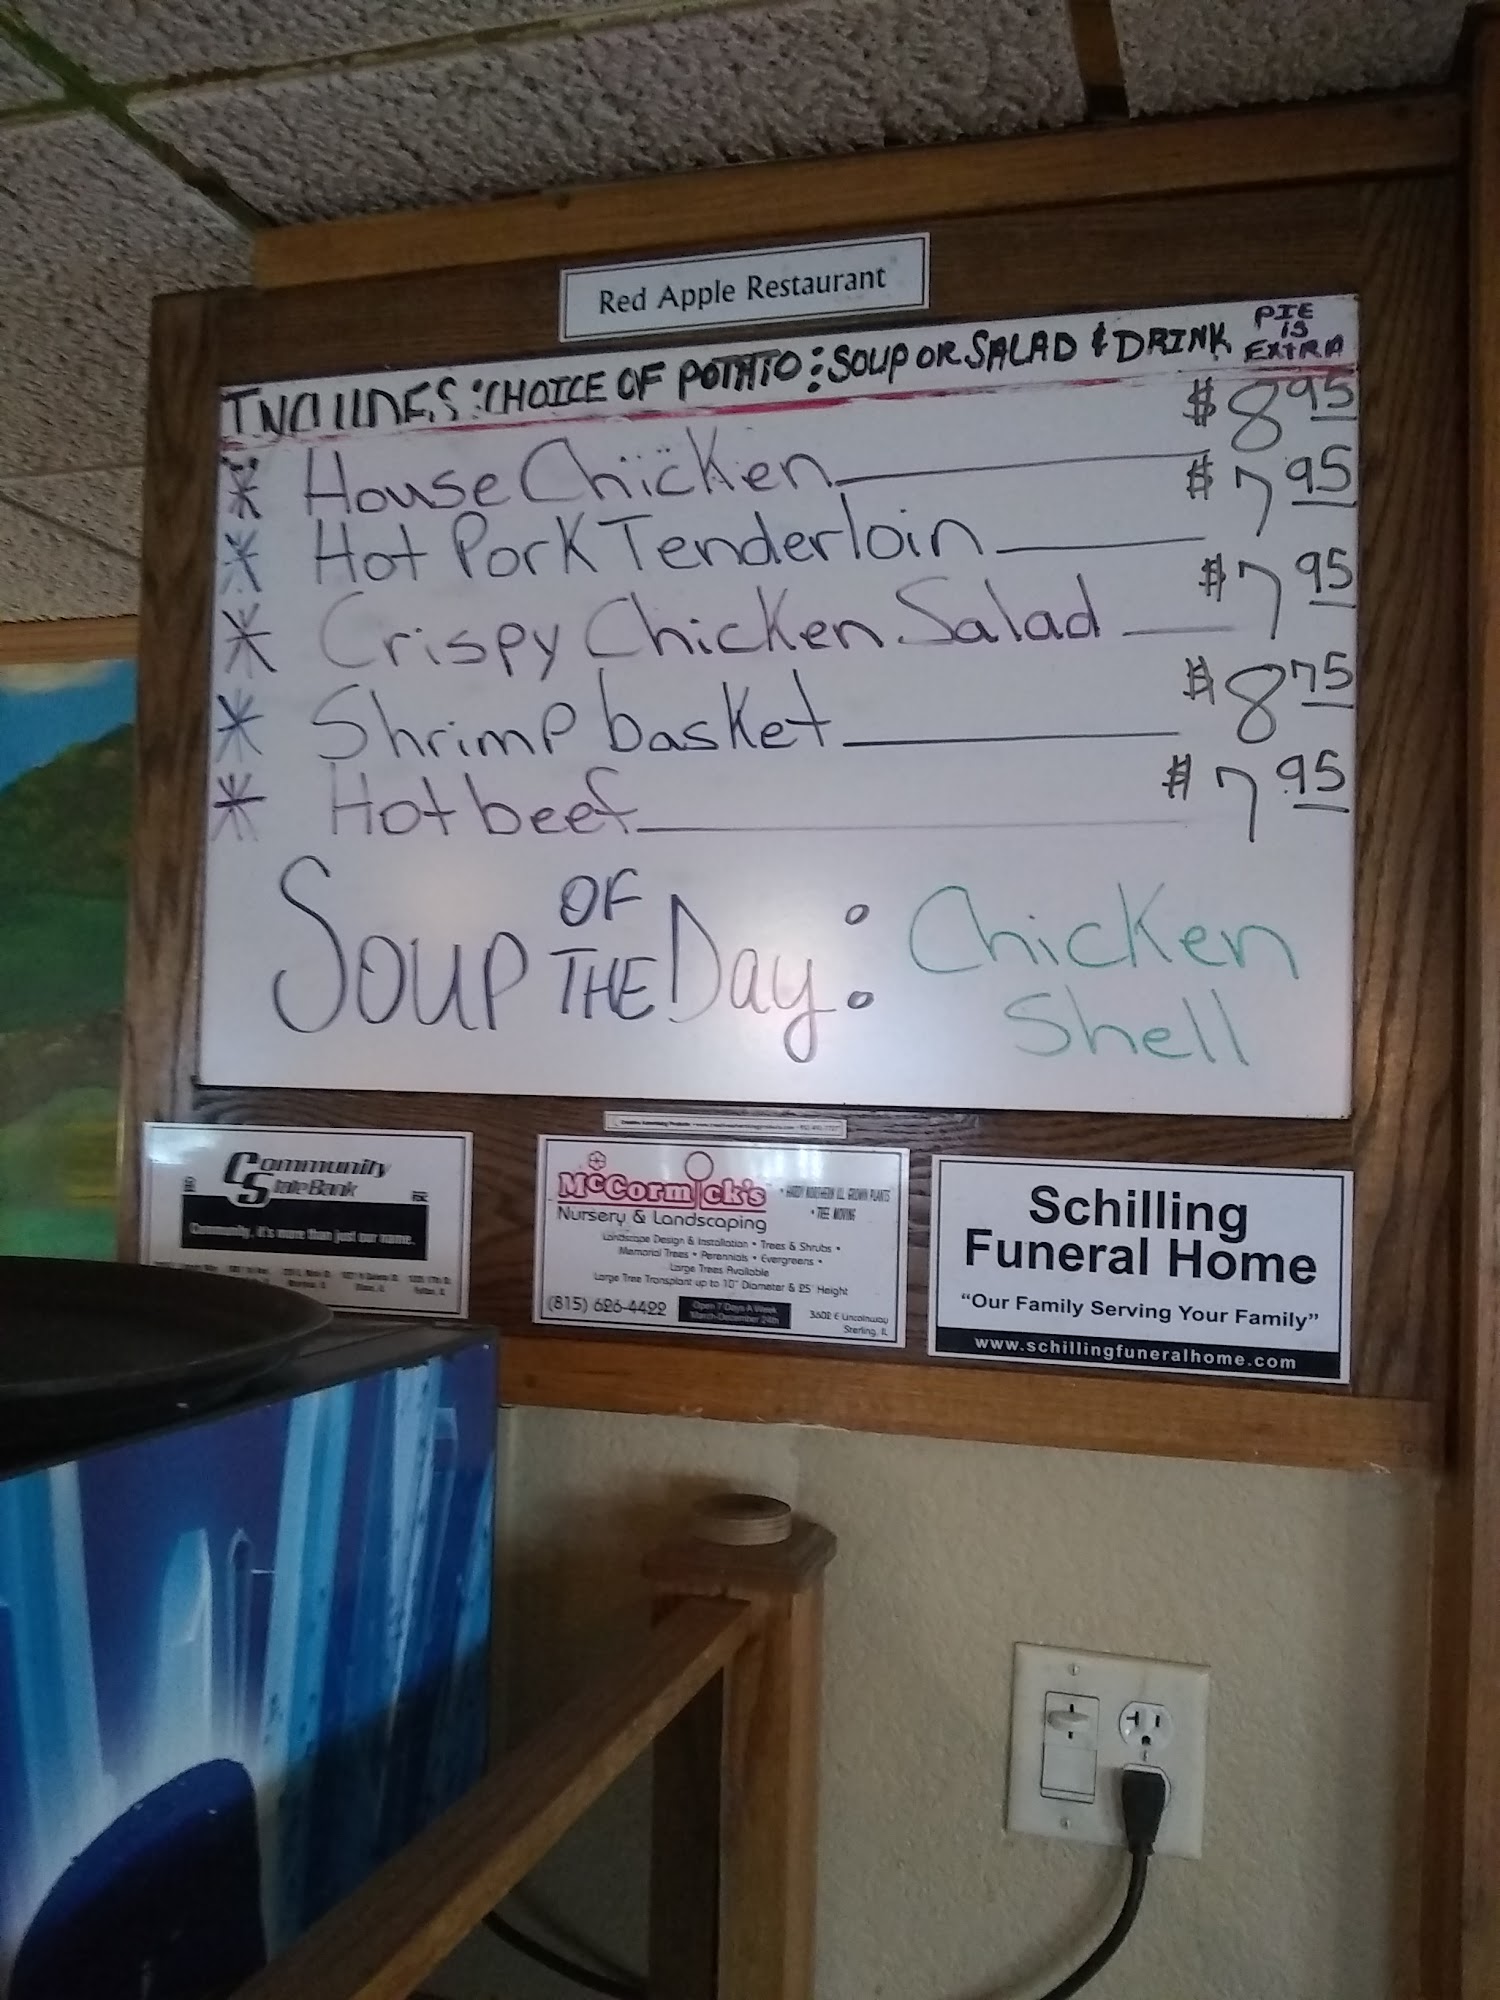 Red Apple Restaurant
INCLUDES: CHOICE OF POTATO: SOUP OR SALAD & DRINK
PIE
IS
EXTRA
* House Chicken $8.95
* Hot Pork Tenderloin $7.95
* Crispy Chicken Salad $7.95
* Shrimp basket $8.75
* Hot beef $7.95
SOUP OF THE Day: Chicken
Shell
Community
State Bank
Community, it's more than just our name.
McCormick's
Nursery & Landscaping
• HARDY NORTHERN ILL GROWN PLANTS
• TREE MOVING
Landscape Design & Installation • Trees & Shrubs •
Memorial Trees • Perennials • Evergreens •
Large Trees Available
Large Tree Transplant up to 10" Diameter & 25' Height
(815) 626-4422
Open 7 Days A Week
March-December 24th
3602 E Lincolnway
Sterling, IL
Schilling
Funeral Home
"Our Family Serving Your Family"
www.schillingfuneralhome.com